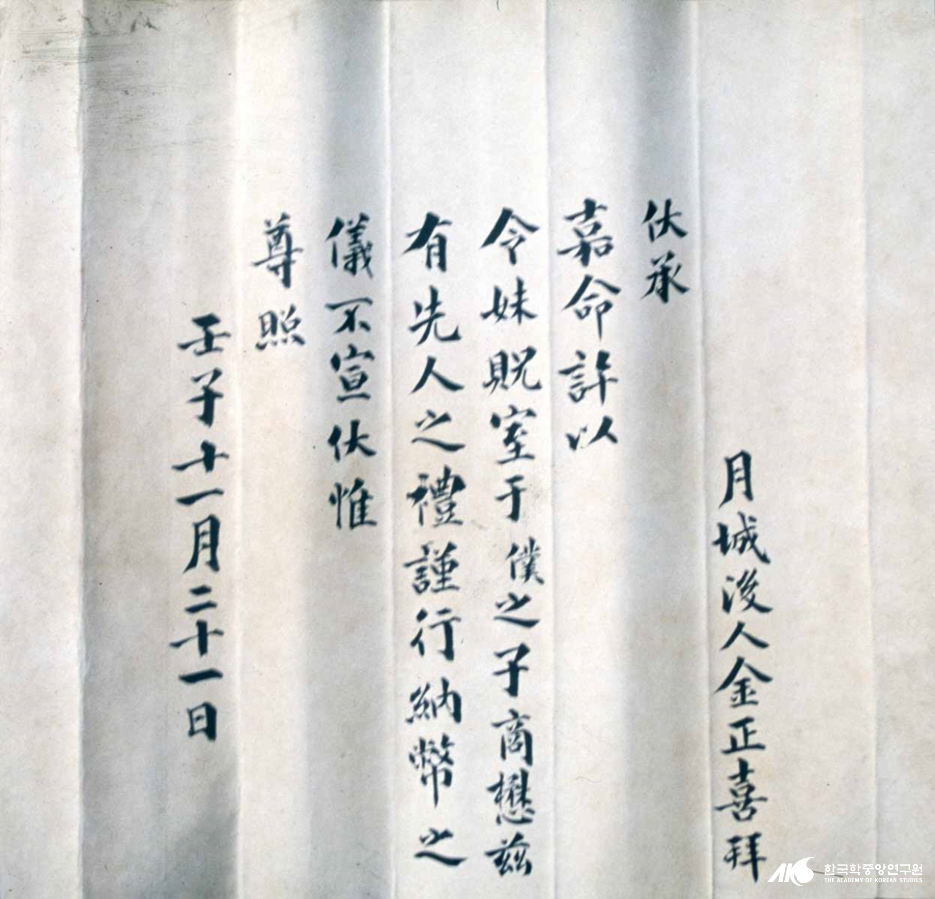 月城後人金正喜拜
伏承
嘉命許以
令妹貺室于僕之子商懋玆
有先人之禮謹行納幣之
儀不宣伏惟
尊照
壬子十一月二十一日
한국학중앙연구원
THE ACADEMY OF KOREAN STUDIES